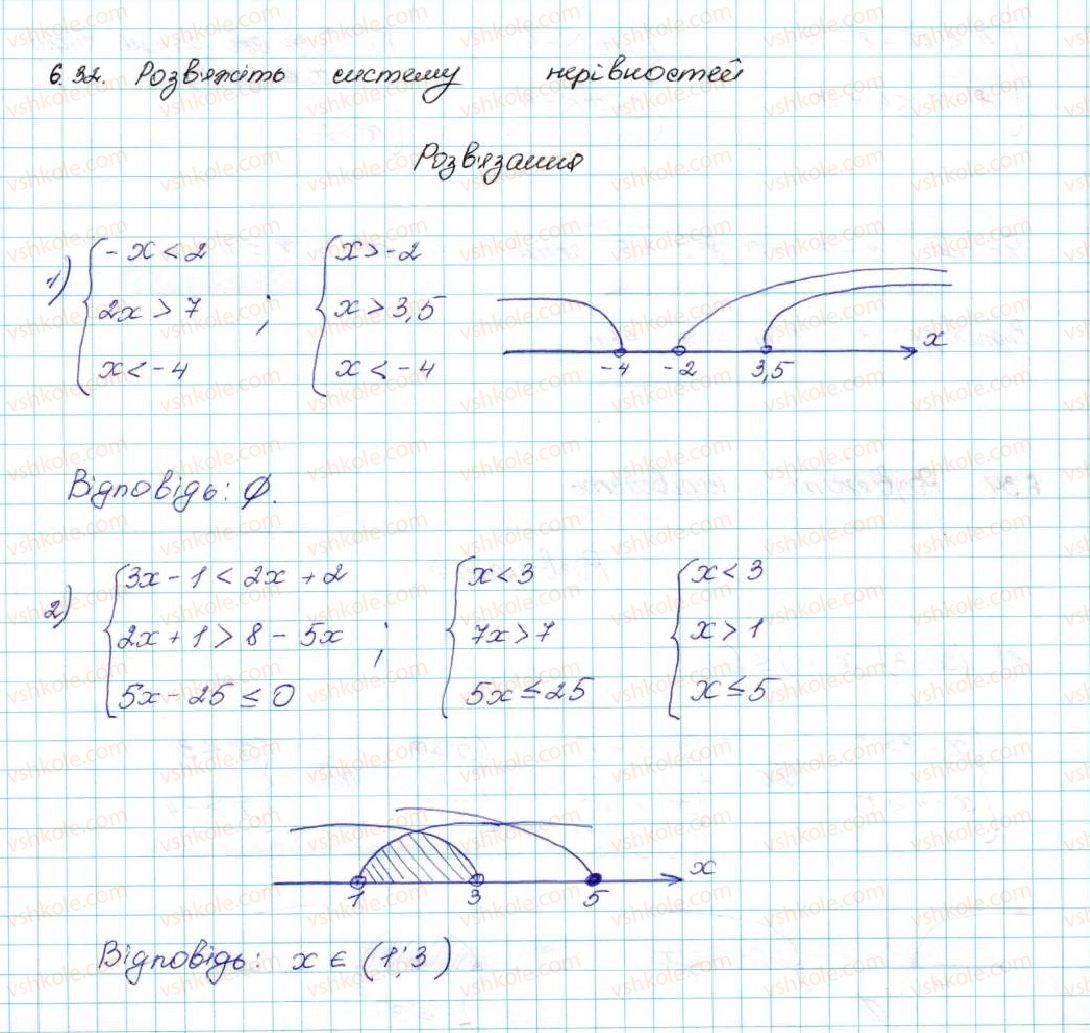 6.32. Розв'яжіть систему нерівностей
Розв'язання
1) { -x < 2 ; { x > -2
2x > 7 x > 3,5
x < -4 x < -4
-4 -2 3,5 x
Відповідь: ∅.
2) { 3x - 1 < 2x + 2 ; { x < 3 { x < 3
2x + 1 > 8 - 5x 7x > 7 x > 1
5x - 25 ≤ 0 5x ≤ 25 x ≤ 5
1 3 5 x
Відповідь: x ∈ (1; 3)
vshkole.com